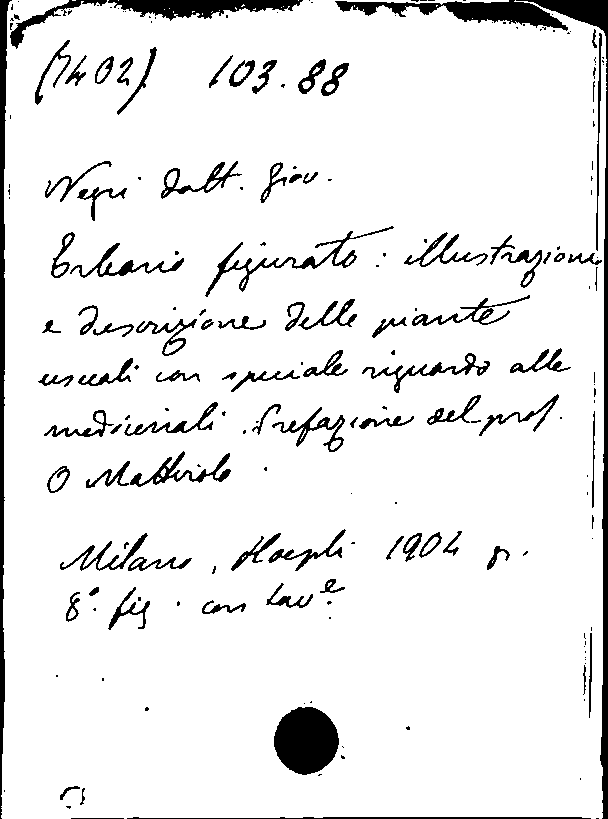 (7402) 103.88
Negri Dott. Giov.
Erbario figurato: illustrazione
e descrizione delle piante
usuali con speciale riguardo alle
medicinali. Prefazione del prof.
O Mattirolo.
Milano, Hoepli 1904 gr.
8° fig. con tav.e